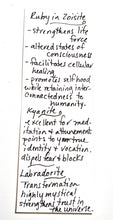 Ruby in Zoisite
-strengthens life
force
-altered states of
consciousness
-facilitates cellular
healing
-promotes selfhood
while retaining inter-
connectedness to
humanity.
Kyanite
excellent for med-
itation & attunement
points to your true
identity & vocation,
dispels fear & blocks
Labradorite
Transformation
highly mystical
strengthens trust in
the universe.